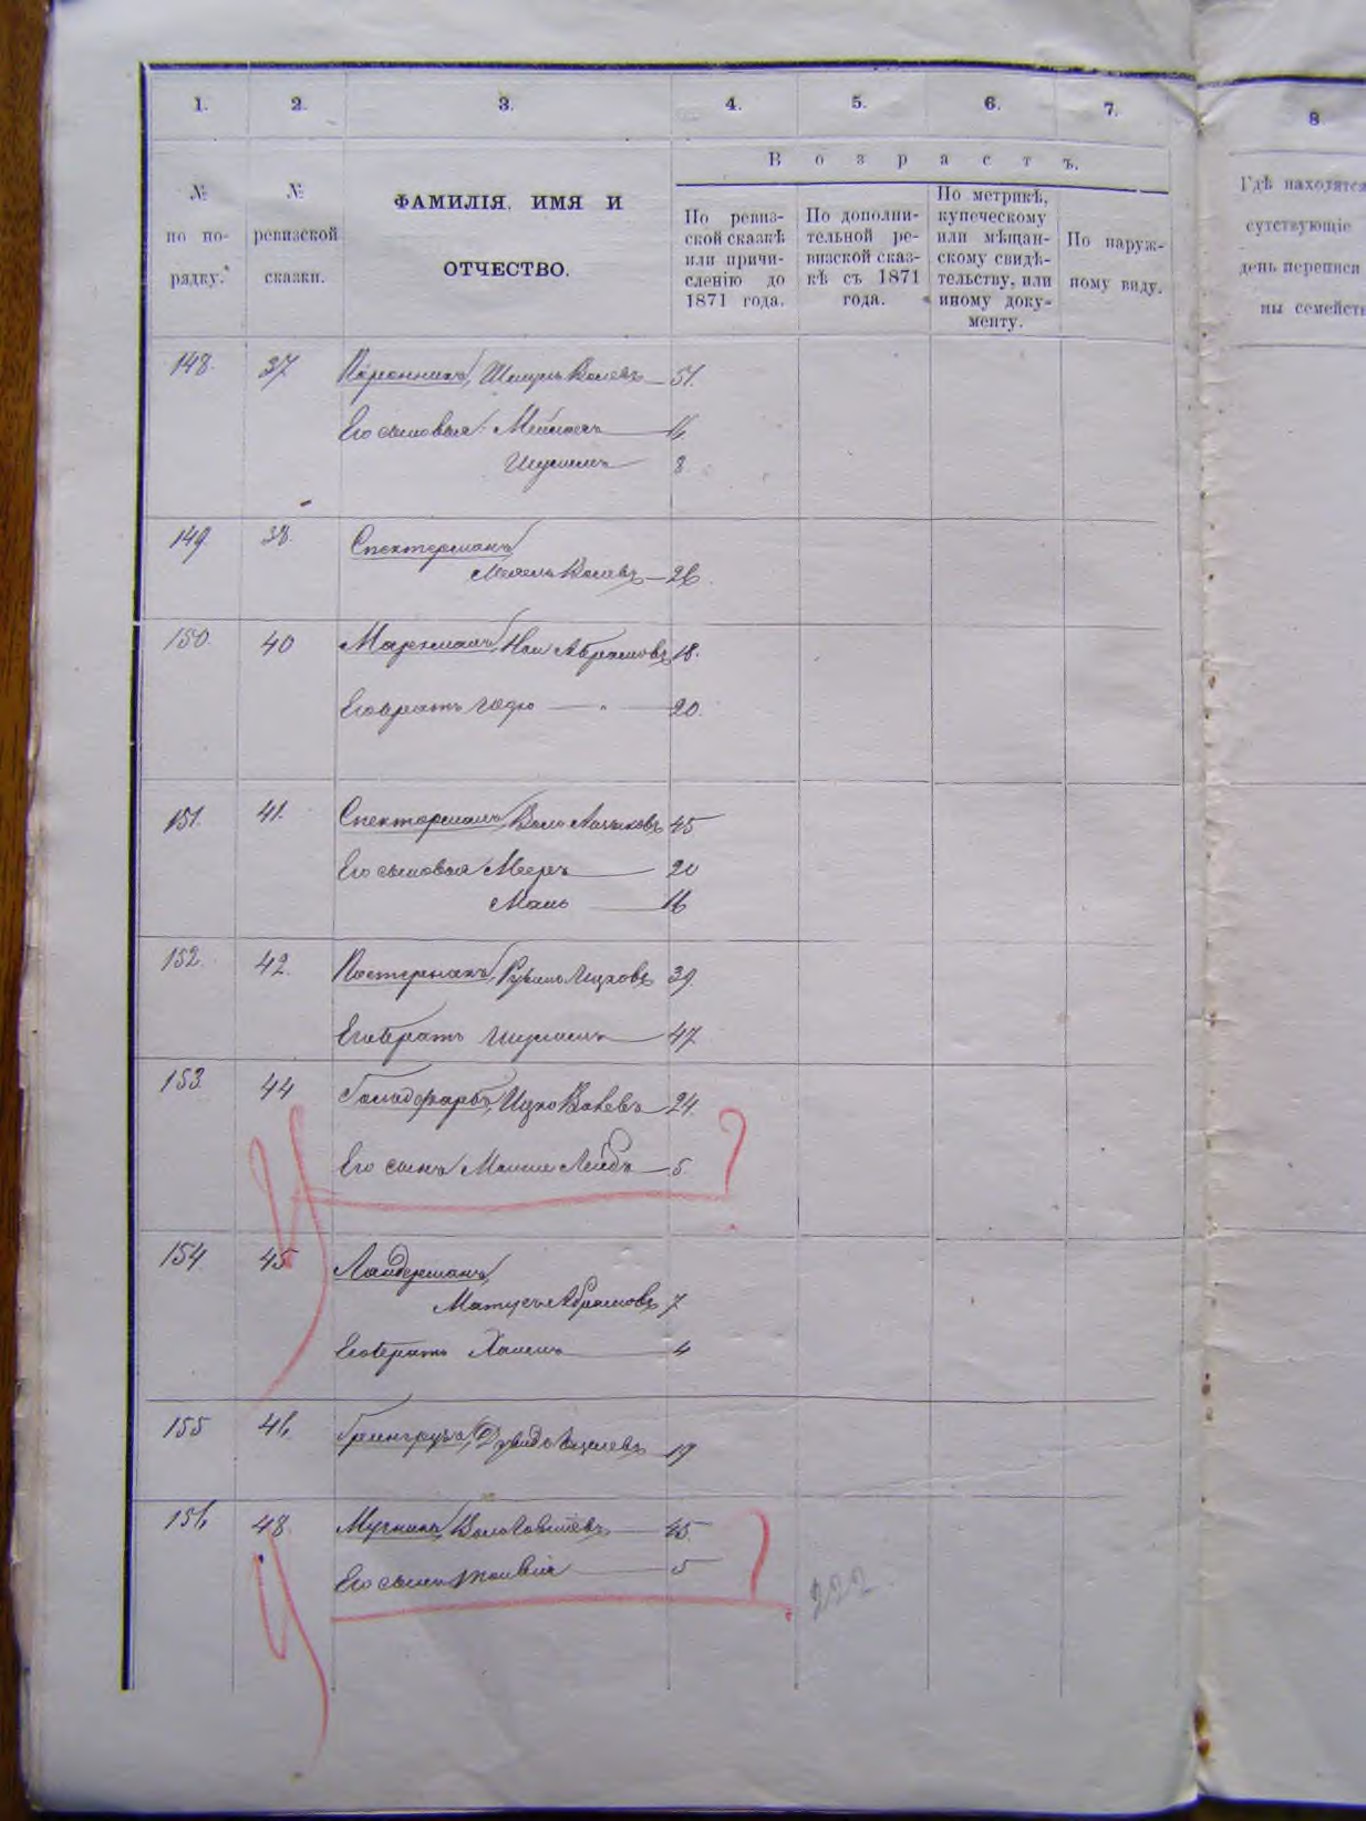 1. 2. 3. 4. 5. 6. 7. 8
Возрастъ.
№ по по-
рядку.
№
ревизской
сказки.
ФАМИЛІЯ, ИМЯ И
ОТЧЕСТВО.
По ревиз-
ской сказкѣ
или причи-
сленію до
1871 года.
По дополни-
тельной ре-
визской сказ-
кѣ съ 1871
года.
По метрикѣ,
купеческому
или мѣщан-
скому свидѣ-
тельству, или
иному доку-
менту.
По наруж-
ному виду.
Гдѣ находятся
сутствующіе
день переписи
ны семейств
148. 37 Волевъ 51.
Его сыновья: 16
Шулимъ 8
149. 38. Спекторманъ
Волевъ 26.
150. 40 Абрамовъ 18.
Его братъ Ицко 20.
151. 41. Спекторманъ, Воль 45
Его сыновья Мееръ 20
16
152. 42. Постернакъ, Рувинъ Ицковъ 39
Его братъ Шулимъ 47
153. 44 Гольдфарбъ, Ицко Волевъ 24.
Его сынъ Мошко Лейбъ 5. ?
154 45 Ландерманъ,
Матусъ Абрамовъ 7
Его братъ 4
155 46 19
156 48. Мучникъ, Воль 45.
Его сынъ 5 ?
222.